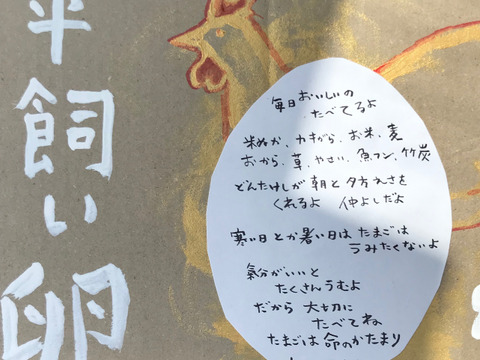 平飼い卵
毎日おいしいの
たべてるよ
米ぬか、カキがら、お米、麦
おから、草、やさい、魚フン、竹炭
どんたけしが朝と夕方えさを
くれるよ 仲よしだよ
寒い日とか暑い日はたまごは
うみたくないよ
気分がいいと
たくさんうむよ
だから大切に
たべてね
たまごは命のかたまり